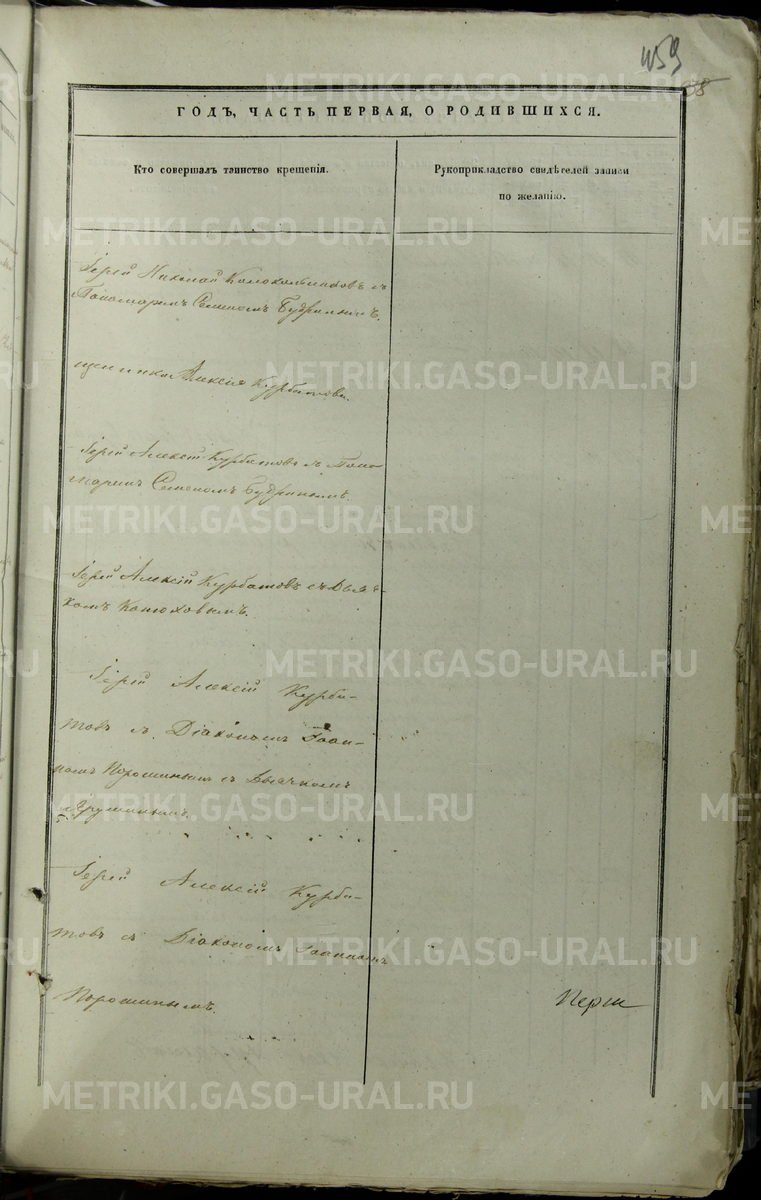 459
58
ГОДЪ, ЧАСТЬ ПЕРВАЯ, О РОДИВШИХСЯ.
Кто совершалъ таинство крещенія.
Рукоприкладство свидѣтелей записи
по желанію.
Іерей Николай Колокольниковъ съ
Пономаремъ Семеномъ Будринымъ.
щенника Алексія Курбатова.
Іерей Алексѣй Курбатовъ съ Поно-
маремъ Семеномъ Будринымъ.
Іерей Алексій Курбатовъ съ Дьяч-
комъ Конюховымъ.
Іерей Алексій Курба-
товъ съ Діакономъ Іоан-
номъ Порошинымъ и Дьячкомъ
Іерей Алексій Курба-
товъ съ Діакономъ Іоанномъ
Порошинымъ.
METRIKI.GASO-URAL.RU